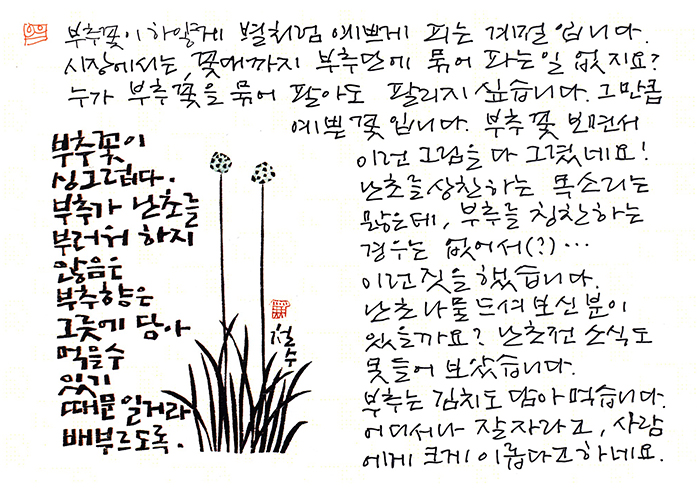 부추꽃이 하얗게 별처럼 예쁘게 피는 계절입니다.
시장에서는, 꽃대까지 부추단에 묶어 파는일 없지요?
누가 부추꽃을 묶어 팔아도 팔리지 싶습니다. 그만큼
예쁜 꽃입니다. 부추꽃 보면서
이런 그림을 다 그렸네요!
난초를 상찬하는 목소리는
많은데, 부추를 칭찬하는
경우는 없어서(?)…
이런 짓을 했습니다.
난초나물 드셔 보신 분이
있을까요? 난초전 소식도
못 들어 보았습니다.
부추는 김치도 담아 먹습니다.
어디서나 잘 자라고, 사람
에게 크게 이롭다고 하네요.
부추꽃이
싱그럽다.
부추가 난초를
부러워 하지
않음은
부추향은
그릇에 담아
먹을수
있기
때문일거라
배부르도록.
철수